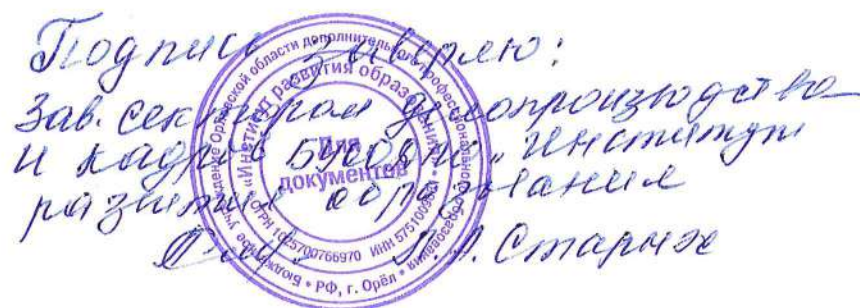 Подпись заверяю:
Зав. сектором делопроизводства
и кадров БУ ОО ДПО „Институт
развития образования
Л. Старых
Бюджетное учреждение Орловской области дополнительного профессионального образования • РФ, г. Орёл •
«Институт развития образования»
ОГРН 1025700766970 ИНН
Для
документов